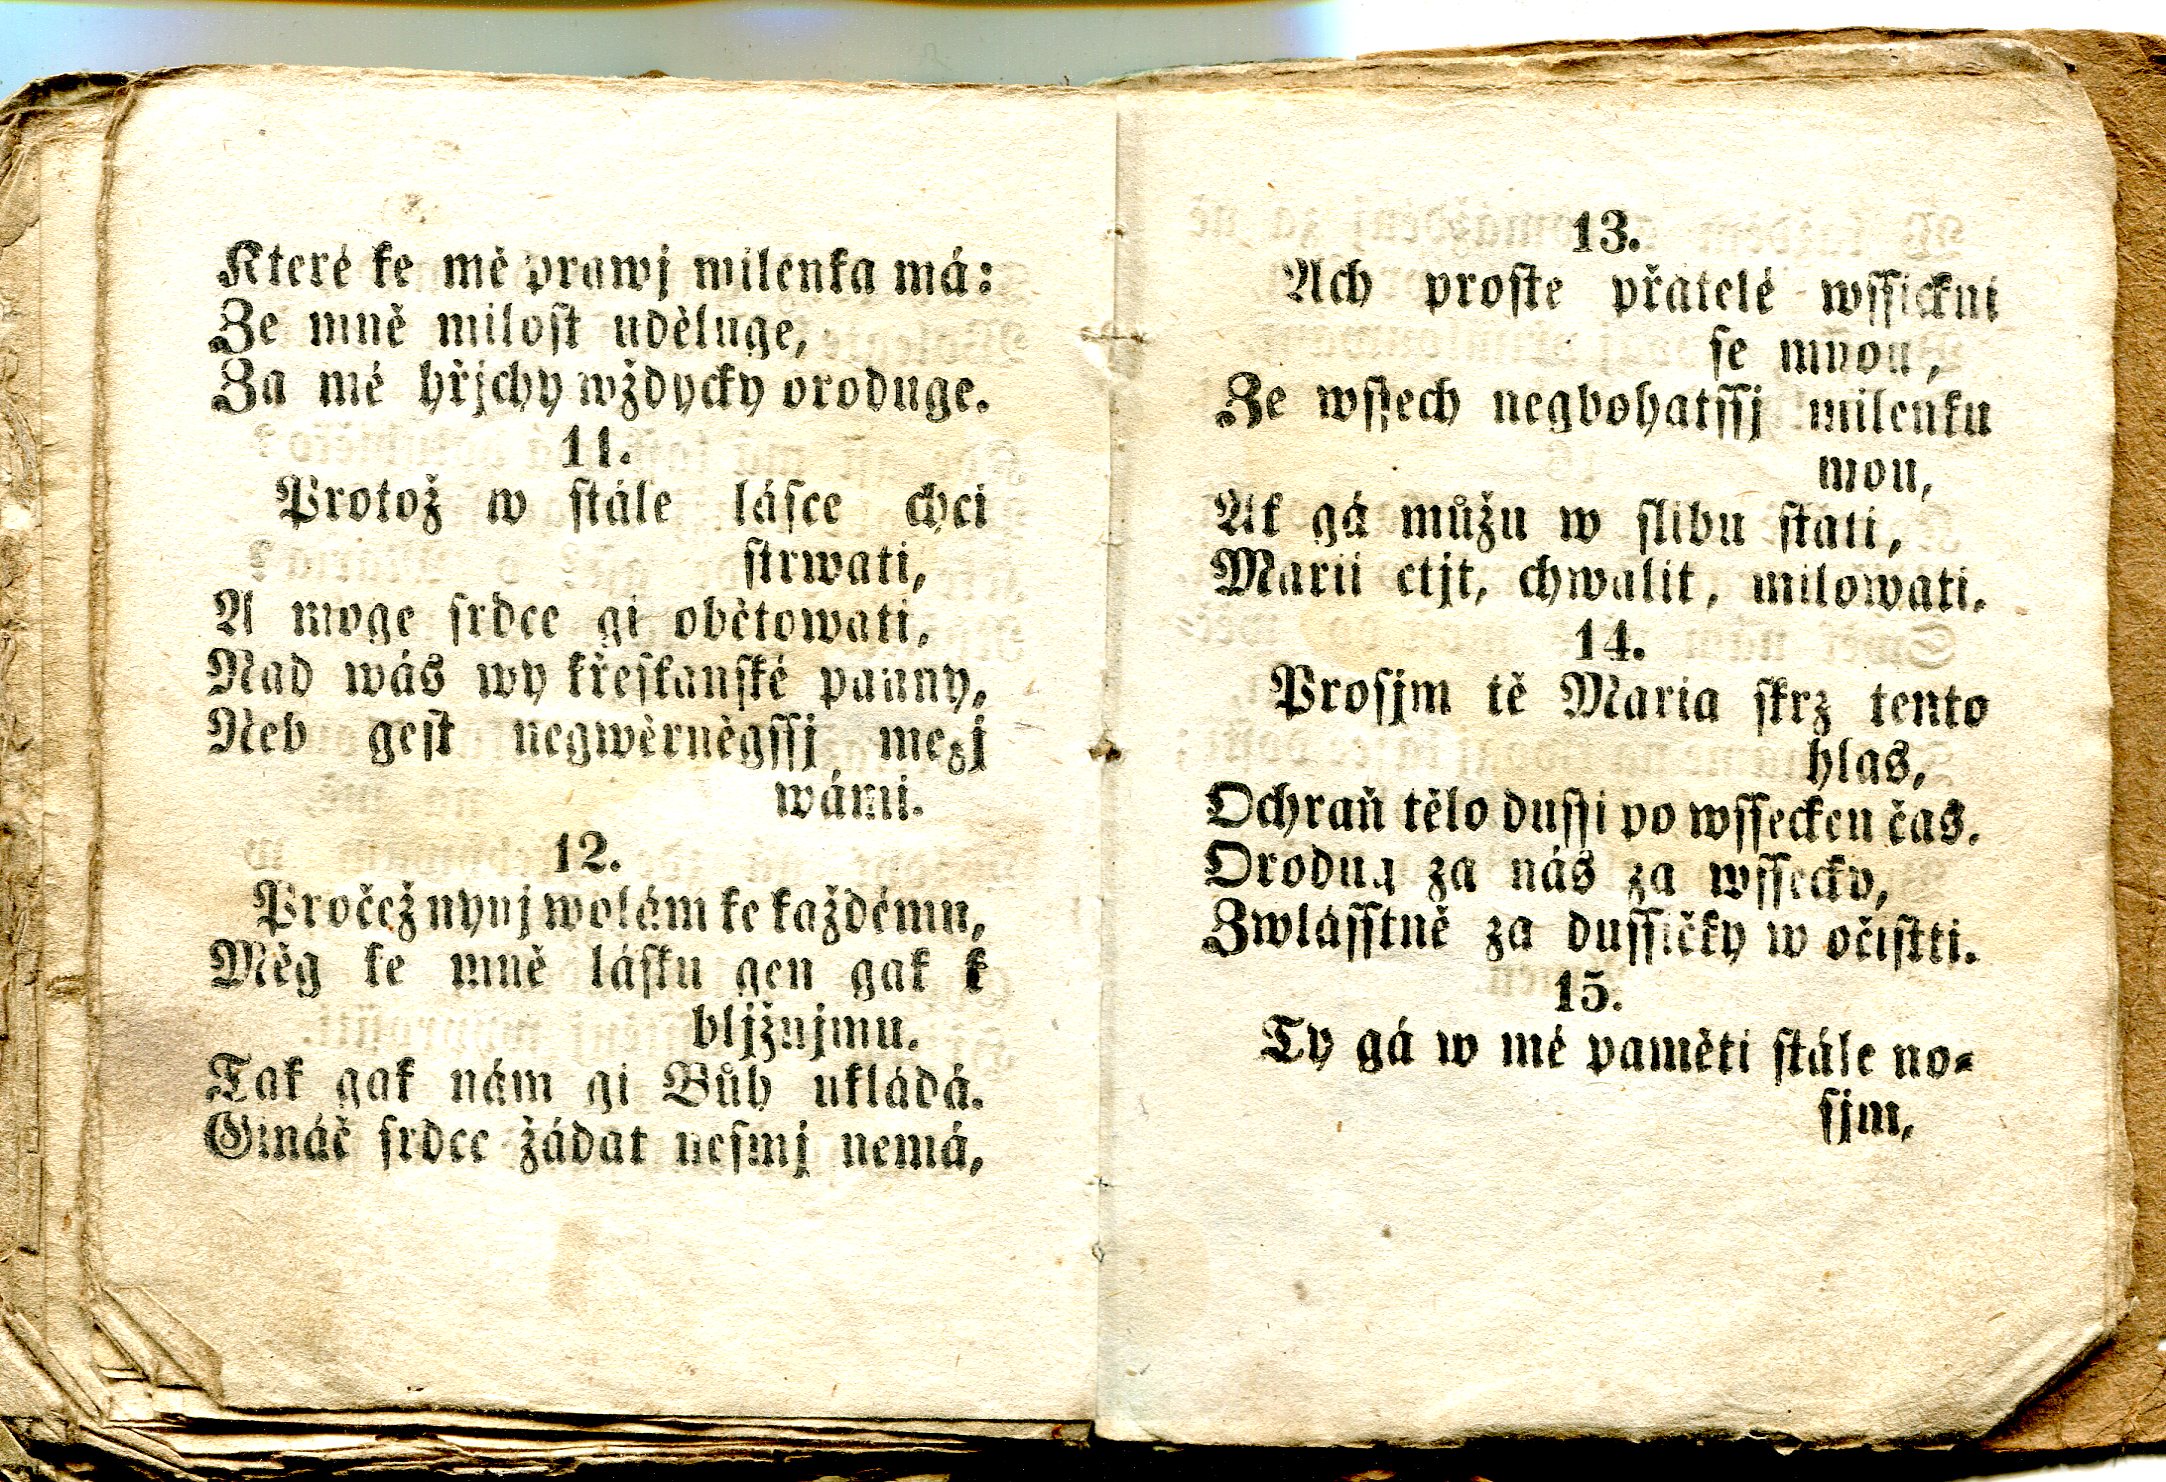 Které ke mě prawj milenka má:
Ze mně milost uděluge,
Za mé hřjchy wždycky oroduge.
11.
Protož w stále lásce chci
strwati,
A moge srdce gi obětowati,
Nad wás wy křeskanské panny,
Neb gest negwěrněgssj mezj
wámi.
12.
Pročež nynj wolám ke každému,
Měg ke mně lásku gen gak k
bljžnjmu.
Tak gak nám gi Bůh ukládá.
Gináč srdce žádat nesmj nemá,
13.
Ach proste přatelé wssickni
se mnou,
Ze wssech negbohatssj milenku
mou,
Ak gá můžu w slibu stati,
Marii ctjt, chwalit, milowati.
14.
Prosjm tě Maria skrz tento
hlas,
Ochraň tělo dussi po wssecken čas.
Orodug za nás za wssecky,
Zwlásstně za dussičky w očistti.
15.
Ty gá w mé paměti stále no-
sjm,